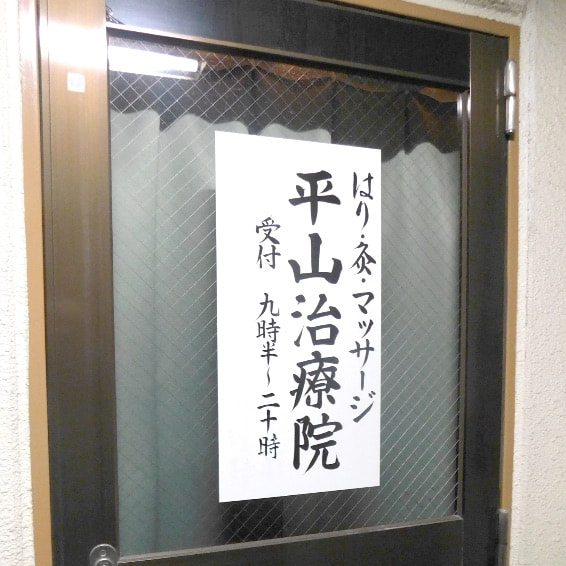 はり・灸・マッサージ
平山治療院
受付 九時半～二十時